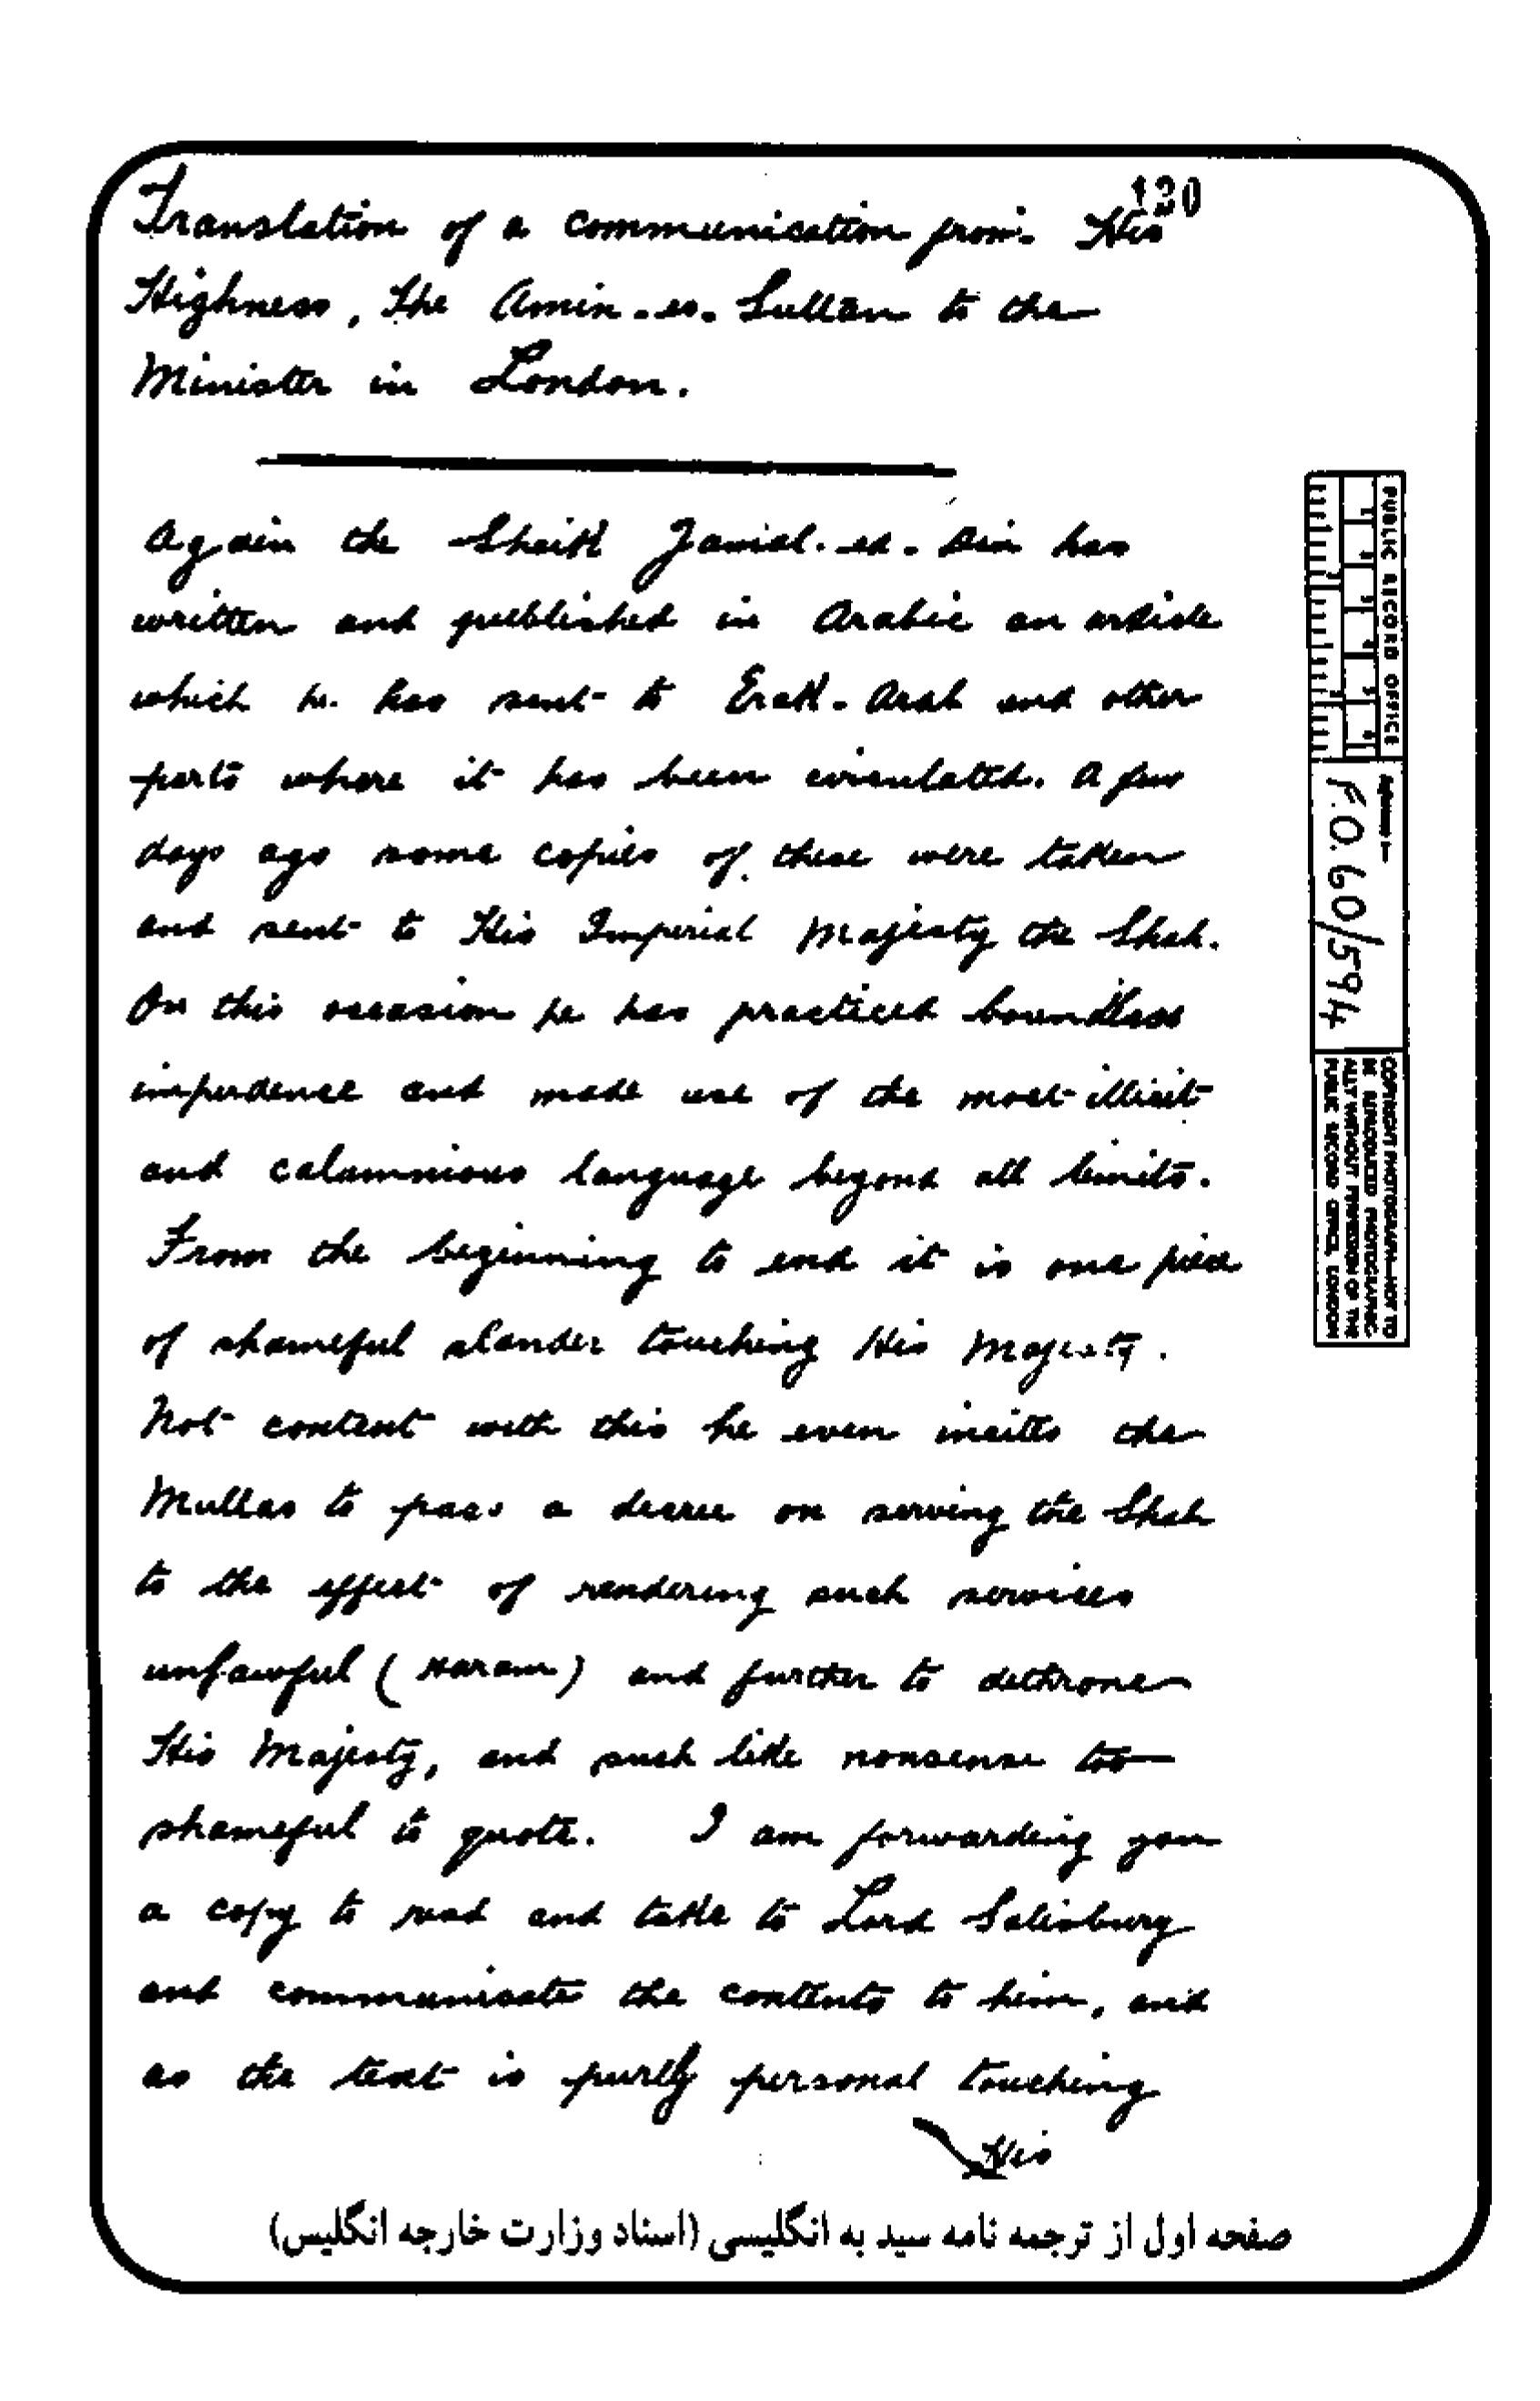 120
Translation of a communication from His
Highness, The Amin-es-Sultan to the
Minister in London.
Again the Sheikh Jamal-ed-Din has
written and published in Arabic an article
which he has sent to Erak-Arab and other
parts where it has been circulated. A few
days ago some copies of these were taken
and sent to His Imperial Majesty the Shah.
On this occasion he has practiced boundless
impudence and made use of the most illicit
and calamnious language beyond all limits.
From the beginning to end it is one piece
of shameful slander touching His Majesty.
Not content with this he even incites the
Mullas to pass a decree on serving the Shah
to the effect of rendering such services
unlawful (Haram) and further to dethrone
His Majesty, and such like nonsense too
shameful to quote. I am forwarding you
a copy to read and take to Lord Salisbury
and communicate the contents to him, and
as the text is purely personal touching
His
PUBLIC RECORD OFFICE
Reference:—
F.O. 60/594
COPYRIGHT PHOTOGRAPH—NOT TO
BE REPRODUCED PHOTOGRAPHIC-
ALLY WITHOUT PERMISSION OF THE
PUBLIC RECORD OFFICE, LONDON
صفحه اول از ترجمه نامه سید به انگلیسی (اسناد وزارت خارجه انگلیس)